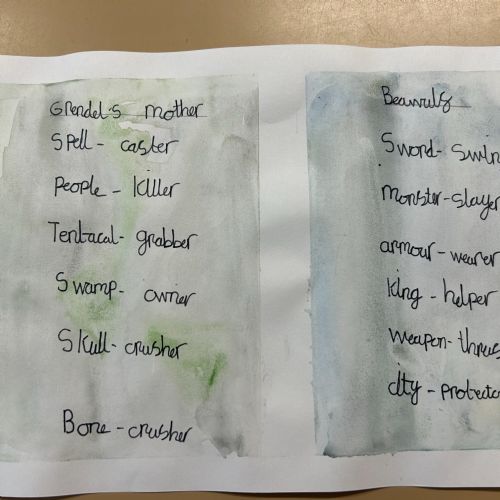 Grendel's mother
Spell- caster
People - killer
Tentacal- grabber
Swamp- owner
Skull-crusher
Bone-crusher
Beawulf
Sword-
monster-slayer
armour-wearer
King - helper
weapon-
city-